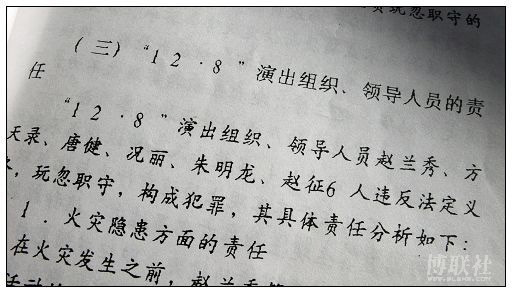 玩忽职守的
(三)“12·8”演出组织、领导人员的责
任
“12·8”演出组织、领导人员赵兰秀、方
天录、唐健、况丽、朱明龙、赵征6人违反法定义
,玩忽职守,构成犯罪,其具体责任分析如下:
1.火灾隐患方面的责任
在火灾发生之前,赵兰秀
活动
博联社